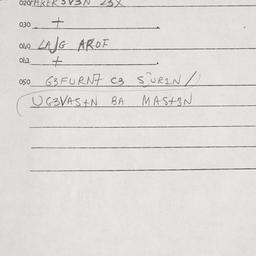 020 HARER SV3N L3X
030 +
040 LAJG AROF
041 +
050 G3FURN7 C3 SUR1N /
UG3VAS+N BA MAS+3N